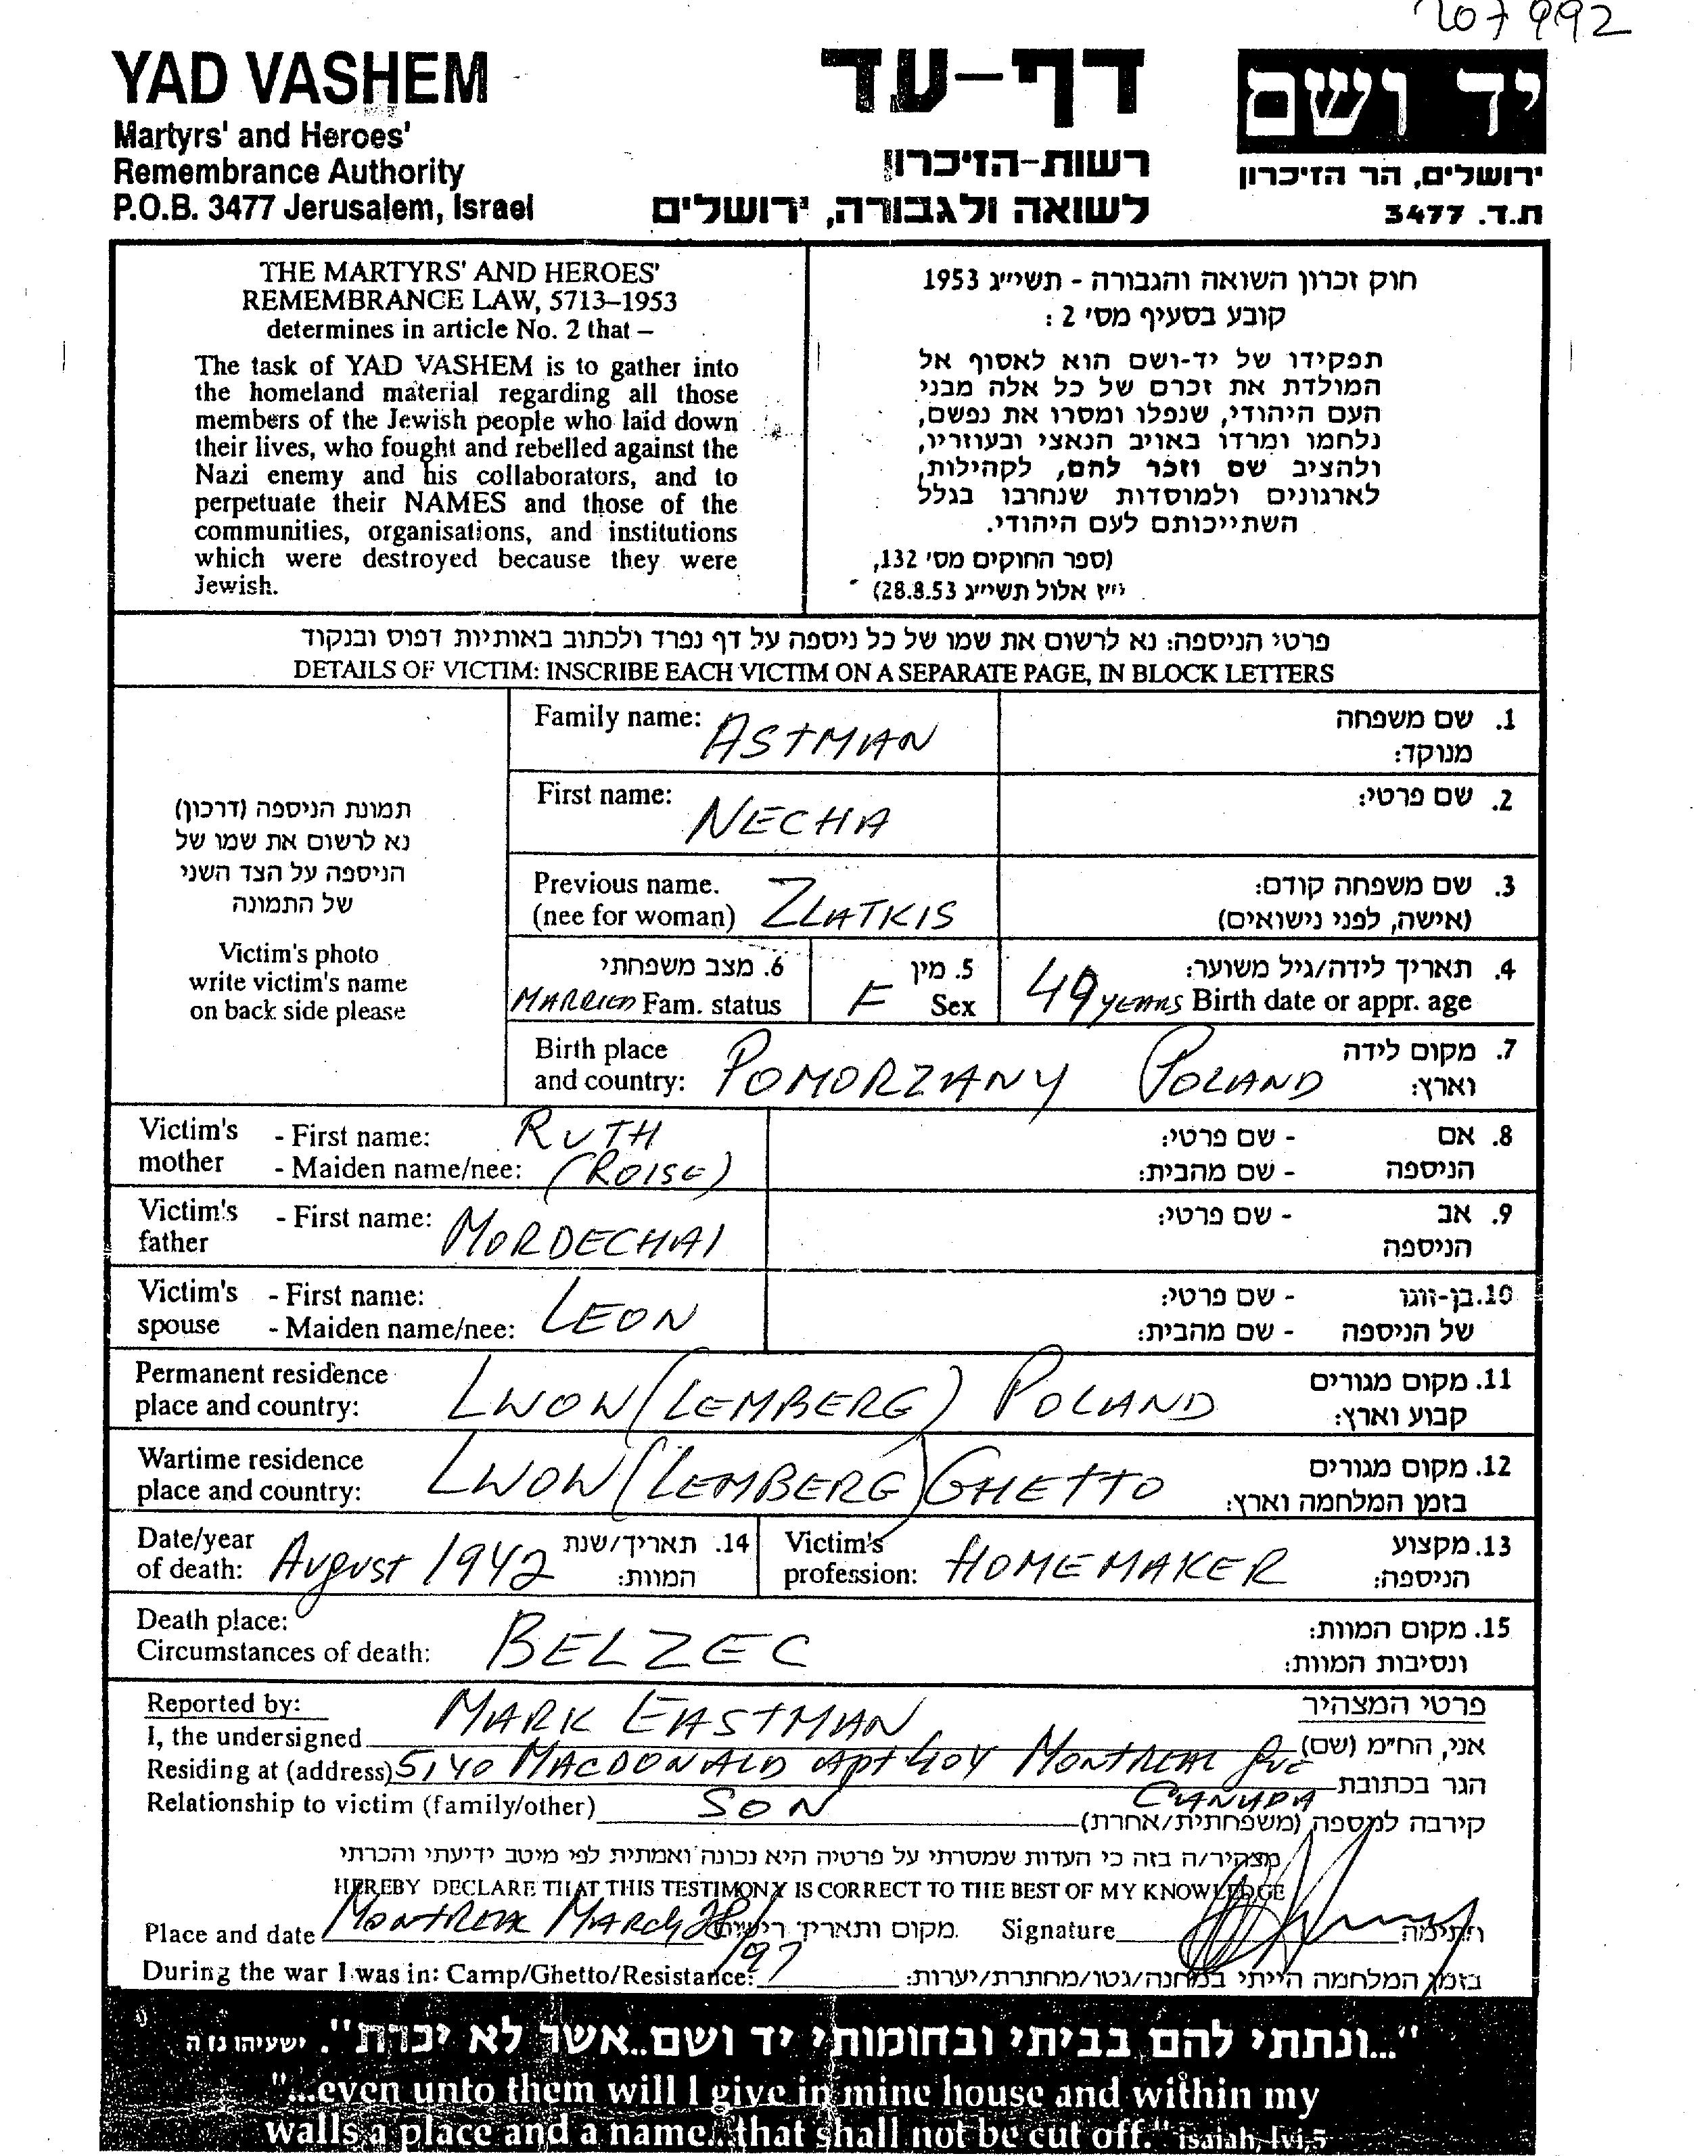 207992
YAD VASHEM
Martyrs' and Heroes'
Remembrance Authority
P.O.B. 3477 Jerusalem, Israel
דף-עד
רשות-הזיכרון
לשואה ולגבורה, ירושלים
יד ושם
ירושלים, הר הזיכרון
ת.ד. 3477
THE MARTYRS' AND HEROES'
REMEMBRANCE LAW, 5713–1953
determines in article No. 2 that –
The task of YAD VASHEM is to gather into
the homeland material regarding all those
members of the Jewish people who laid down
their lives, who fought and rebelled against the
Nazi enemy and his collaborators, and to
perpetuate their NAMES and those of the
communities, organisations, and institutions
which were destroyed because they were
Jewish.
חוק זכרון השואה והגבורה - תשי״ג 1953
קובע בסעיף מס׳ 2 :
תפקידו של יד-ושם הוא לאסוף אל
המולדת את זכרם של כל אלה מבני
העם היהודי, שנפלו ומסרו את נפשם,
נלחמו ומרדו באויב הנאצי ובעוזריו,
ולהציב שם וזכר להם, לקהילות,
לארגונים ולמוסדות שנחרבו בגלל
השתייכותם לעם היהודי.
(ספר החוקים מס׳ 132,
י״ז אלול תשי״ג 28.8.53)
פרטי הניספה: נא לרשום את שמו של כל ניספה על דף נפרד ולכתוב באותיות דפוס ובנקוד
DETAILS OF VICTIM: INSCRIBE EACH VICTIM ON A SEPARATE PAGE, IN BLOCK LETTERS
תמונת הניספה (דרכון)
נא לרשום את שמו של
הניספה על הצד השני
של התמונה
Victim's photo
write victim's name
on back side please
Family name: ASTMAN 1. שם משפחה
מנוקד:
First name: NECHA 2. שם פרטי:
Previous name. ZLATKIS 3. שם משפחה קודם:
(nee for woman) (אישה, לפני נישואים)
6. מצב משפחתי 5. מין 4. תאריך לידה/גיל משוער:
MARRIED Fam. status F Sex 49 YEARS Birth date or appr. age
Birth place POMORZANY POLAND 7. מקום לידה
and country: וארץ:
Victim's - First name: RUTH - שם פרטי: 8. אם
mother - Maiden name/nee: (ROISE) - שם מהבית: הניספה
Victim's - First name: MORDECHAI - שם פרטי: 9. אב
father הניספה
Victim's - First name: LEON - שם פרטי: 10. בן-זוגו
spouse - Maiden name/nee: - שם מהבית: של הניספה
Permanent residence LWOW (LEMBERG) POLAND 11. מקום מגורים
place and country: קבוע וארץ:
Wartime residence LWOW (LEMBERG) GHETTO 12. מקום מגורים
place and country: בזמן המלחמה וארץ:
Date/year August 1942 14. תאריך/שנת Victim's HOMEMAKER 13. מקצוע
of death: המוות: profession: הניספה:
Death place: BELZEC 15. מקום המוות:
Circumstances of death: ונסיבות המוות:
Reported by: פרטי המצהיר
I, the undersigned MARK EASTMAN אני, הח״מ (שם)
Residing at (address) 5140 MACDONALD apt 404 MONTREAL Que הגר בכתובת
CANADA
Relationship to victim (family/other) SON קירבה לניספה (משפחתית/אחרת)
מצהיר/ה בזה כי העדות שמסרתי על פרטיה היא נכונה ואמתית לפי מיטב ידיעתי והכרתי
HEREBY DECLARE THAT THIS TESTIMONY IS CORRECT TO THE BEST OF MY KNOWLEDGE
Place and date MONTREAL MARCH 28/97 מקום ותאריך Signature חתימה
During the war I was in: Camp/Ghetto/Resistance: בזמן המלחמה הייתי במחנה/גטו/מחתרת/יערות:
"...ונתתי להם בביתי ובחומותי יד ושם..אשר לא יכרת". ישעיהו נו ה
"...even unto them will I give in mine house and within my
walls a place and a name...that shall not be cut off." isaiah, lvi,5